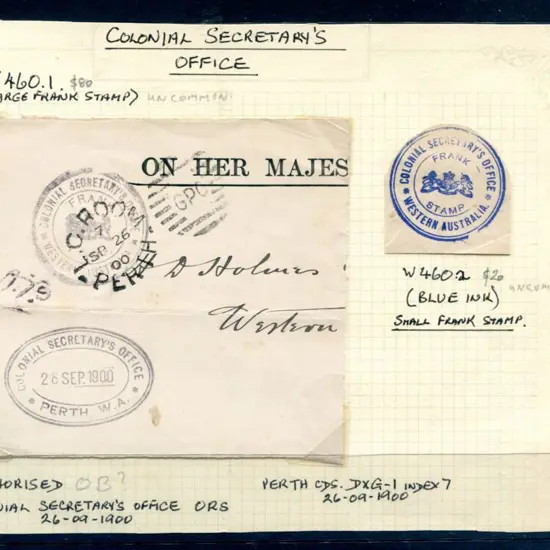 COLONIAL SECRETARY'S
OFFICE
460.1. $80
ARGE FRANK STAMP) UNCOMMON
ON HER MAJES
COLONIAL SECRETARY'S
FRANK
GPO
C.ROOM
SP 26
00
PERTH
D Holmes
Western
COLONIAL SECRETARY'S OFFICE
26 SEP.1900
PERTH W.A.
COLONIAL SECRETARY'S OFFICE
FRANK
STAMP
WESTERN AUSTRALIA.
W4602 $20
(BLUE INK) UNCOM
SMALL FRANK STAMP.
HORISED OB?
NIAL SECRETARY'S OFFICE ORS
26-09-1900
PERTH CDS. DXG-1 INDEX 7
26-09-1900